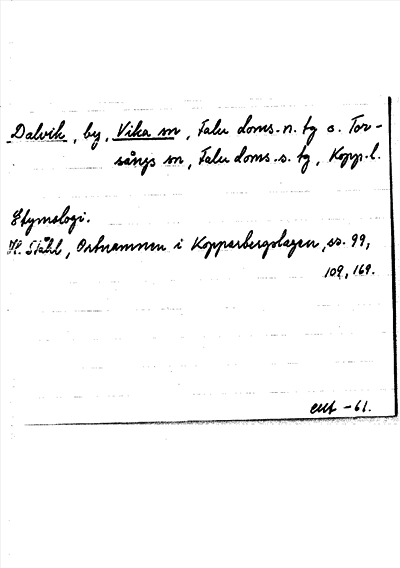 Dalvik, by, Vika sn, Falu doms.n. tg o. Tor-
sångs sn, Falu doms.s. tg, Kopp.l.
Etymologi.
H. Ståhl, Ortnamnen i Kopparbergslagen, ss. 99,
109, 169.
-61.